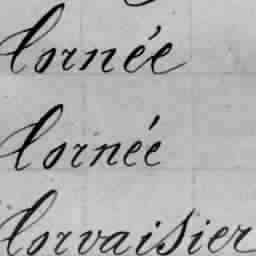 Cornée
Cornée
Corvaisier